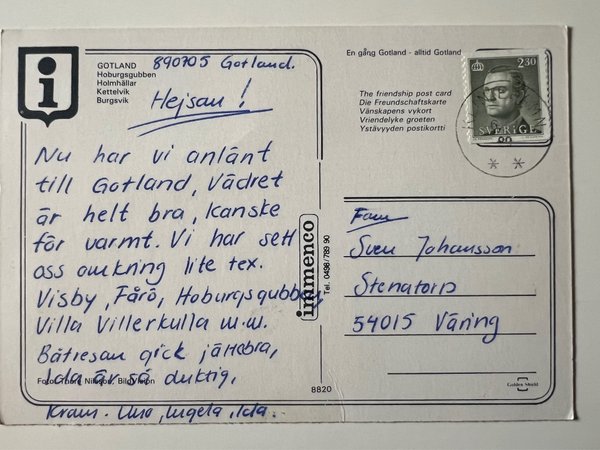 GOTLAND
Hoburgsgubben
Holmhällar
Kettelvik
Burgsvik
890705 Gotland.
Hejsan!
Nu har vi anlänt
till Gotland, Vädret
är helt bra, kanske
för varmt. Vi har sett
oss omkring lite tex.
Visby, Fårö, Hoburgsgubben
Villa Villerkulla m.m.
Båtresan gick jättebra,
Ida är så duktig,
Kram. Ida.
Foto: Nilsson, Bildvision
8820
immenco
Tel. 0498/789 90
En gång Gotland - alltid Gotland
The friendship post card
Die Freundschaftskarte
Vänskapens vykort
Vriendelyke groeten
Ystävyyden postikortti
2.30
SVERIGE
Fam
Sven Johansson
Stenatorp
54015 Väring
Golden Shield